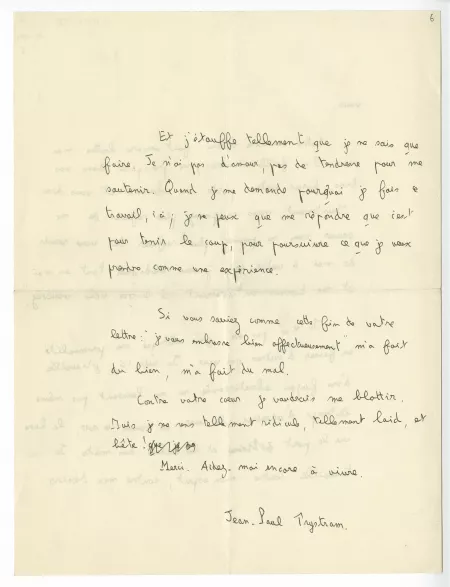 6
Et j'étouffe tellement que je ne sais que
faire. Je n'ai pas d'amour, pas de tendresse pour me
soutenir. Quand je me demande pourquoi je fais ce
travail, ici ; je ne peux que me répondre que c'est
pour tenir le coup, pour poursuivre ce que je veux
prendre comme une expérience.
Si vous saviez comme cette fin de votre
lettre : je vous embrasse bien affectueusement m'a fait
du bien, m'a fait du mal.
Contre votre cœur je voudrais me blottir.
Mais je me sens tellement ridicule, tellement laid, et
bête !
Merci. Aidez-moi encore à vivre.
Jean-Paul Trystram.